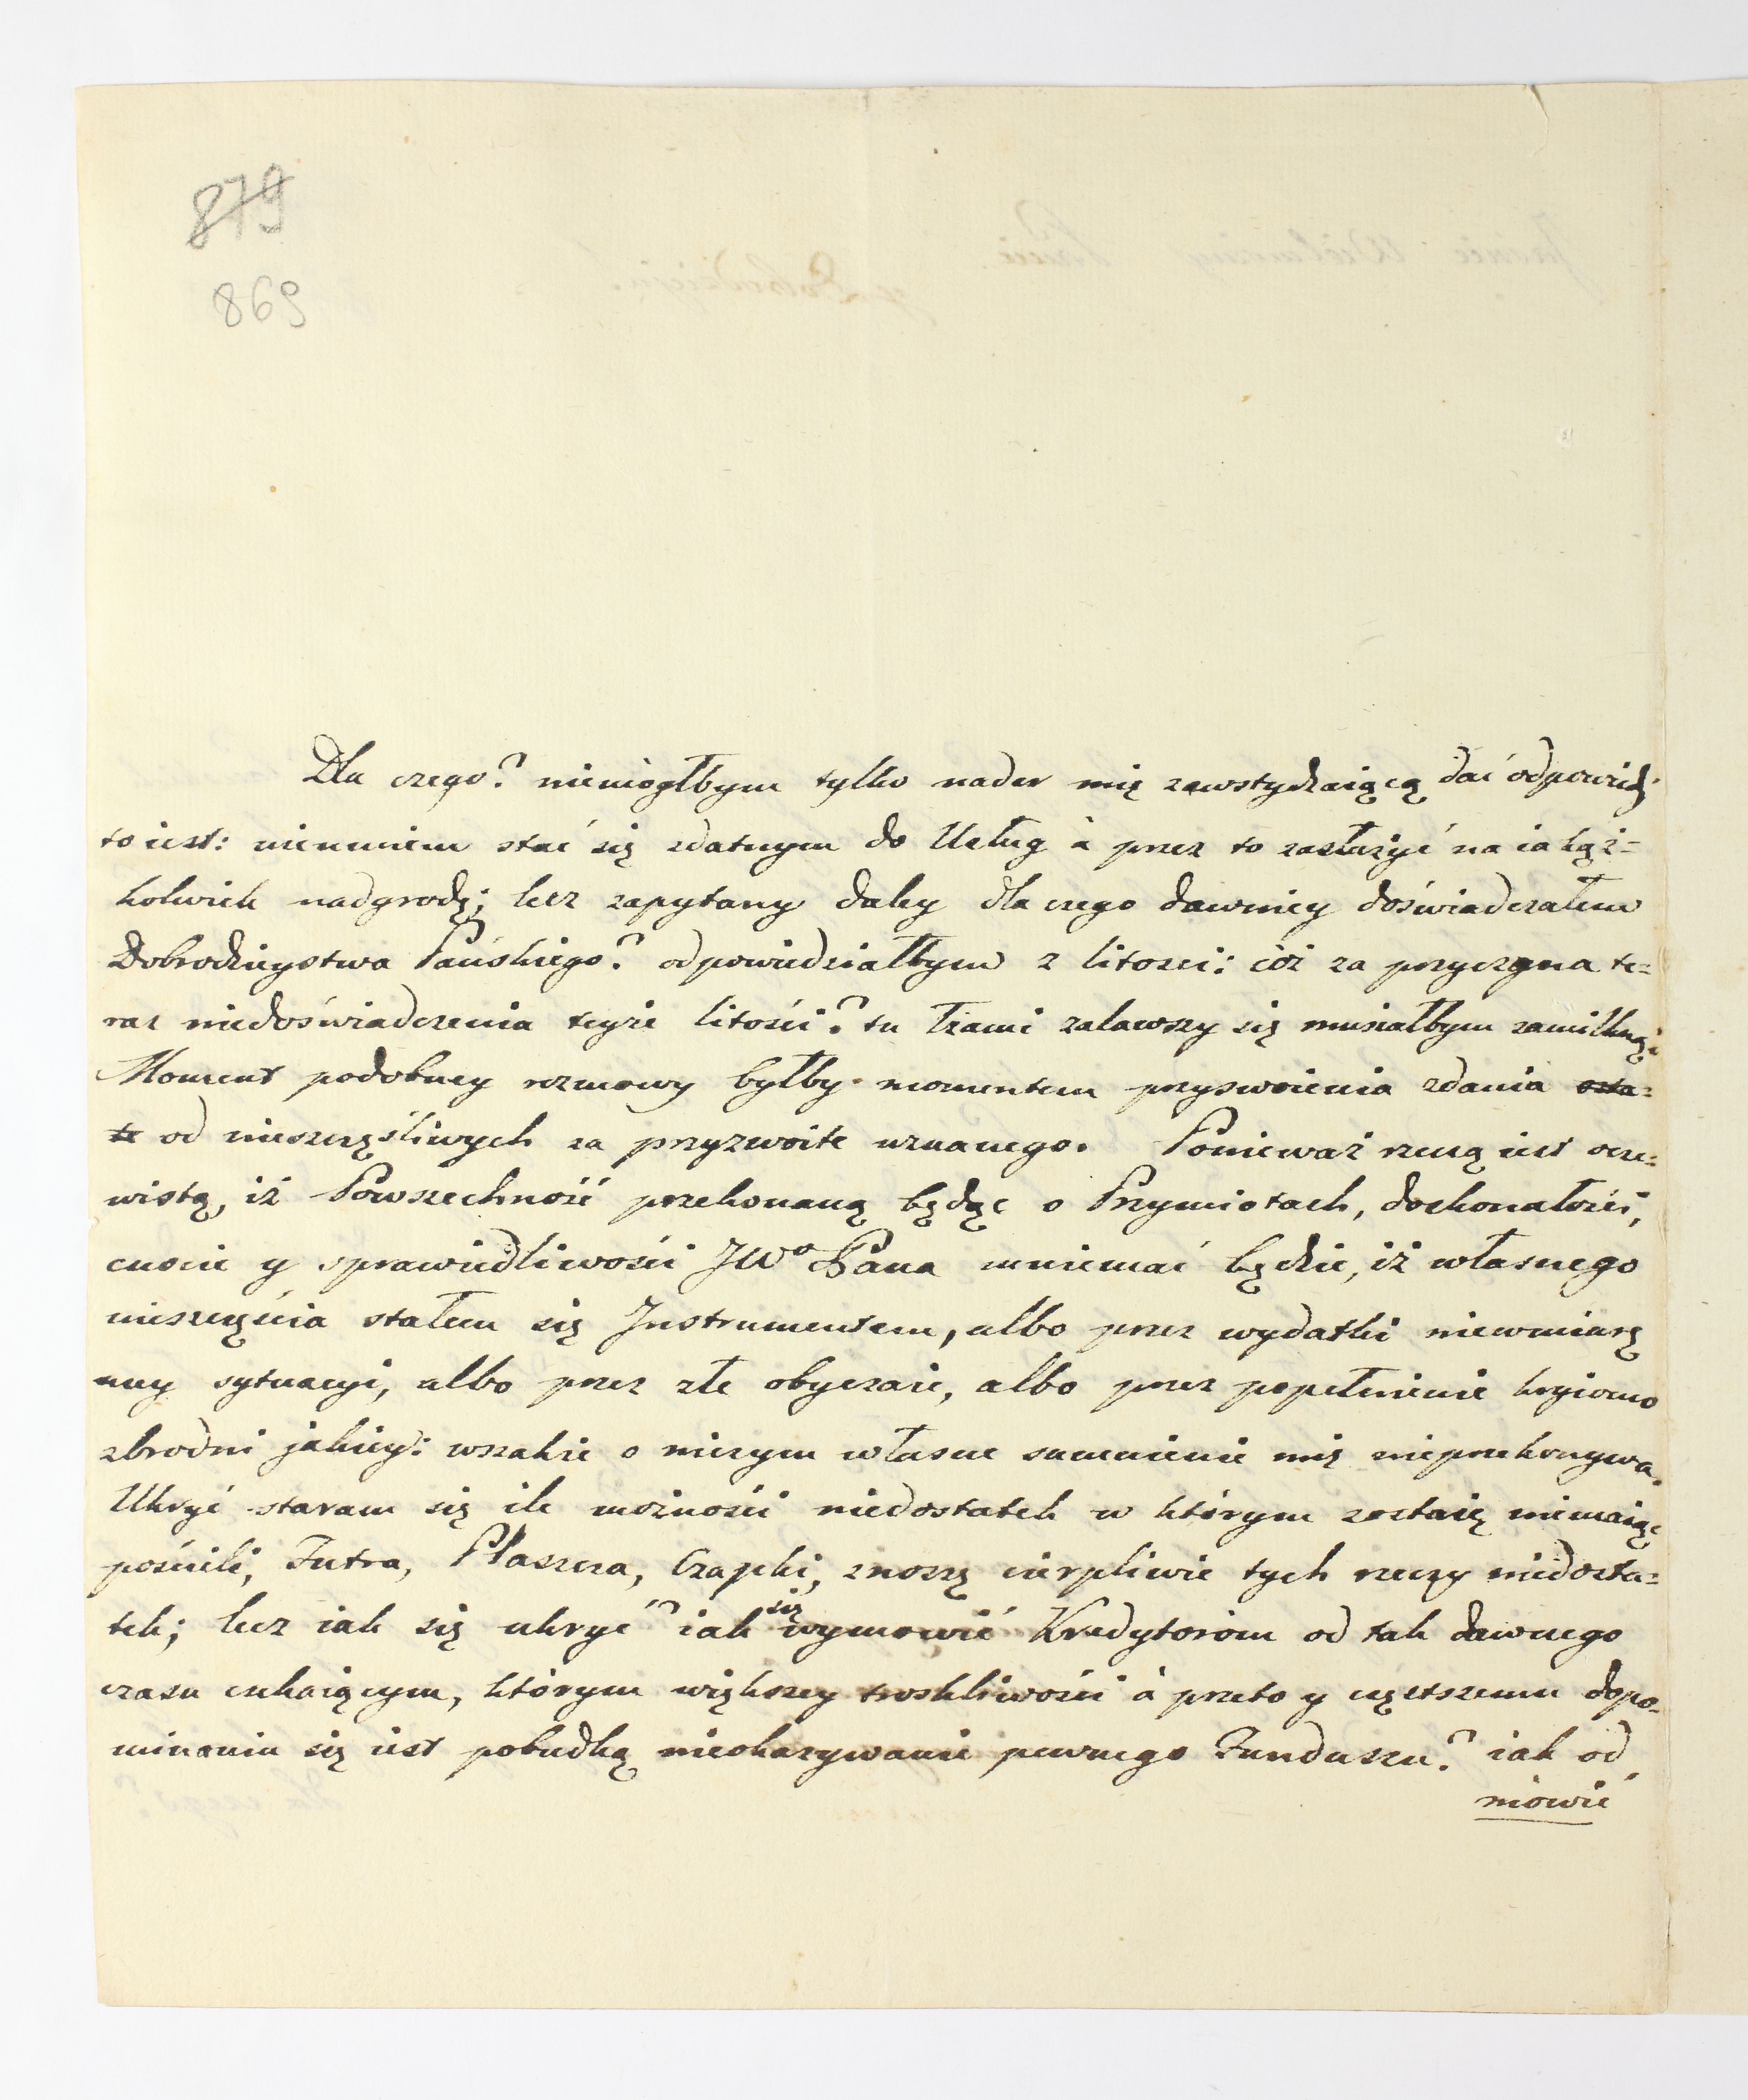 879
869
Dla czego? niemógłbym tylko nader mię zawstydzaiącą dać odpowiedź
to iest: nieumiem stać się zdatnym do Usług à przez to zasłużyć na iakąż=
kolwiek nadgrodę; lecz zapytany daley dla czego dawniey doświadczałem
Dobrodzieystwa Pańskiego? odpowiedziałbym z litosci: cóż za przyczyna te=
raz niedoświadczenia teyże litości? tu łzami zalawszy się musiałbym zamilknąć.
Moment podobney rozmowy byłby momentem przyswoienia zdania osta=
te od nieszczęśliwych za przyzwoite uznanego. Ponieważ rzeczą iest ocze=
wistą, iż Powszechność przekonaną będąc o Przymiotach, doskonałości,
cnocie y sprawiedliwości JWo Pana mniemać będzie, iż własnego
nieszczęścia stałem się Instrumentem, albo przez wydatki niewmiarę
mey sytuacyi, albo przez złe obyczaie, albo przez popełnienie kryiomo
zbrodni jakiey: wszakże o niczym własne sumnienie mię nieprzekonywa.
Ukryć staram się ile możności niedostatek w którym zostaię niemaiąc
pościeli, Futra, Płaszcza, Czapki, znoszę cierpliwie tych rzeczy niedosta=
tek; lecz iak się ukryć? iak się wymowić Kredytorom od tak dawnego
czasu czekaiącym, którym większey troskliwości à przeto y częstszemu dopo=
minaniu się iest pobudką nieokazywanie pewnego Funduszu? iak od
mówić